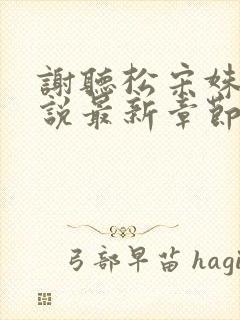 謝聽松宋妹
說最新章節
弓部早苗 hagi